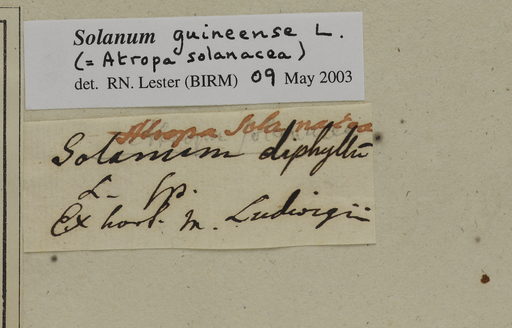 Solanum guineense L.
(= Atropa solanacea)
det. RN. Lester (BIRM) 09 May 2003
Atropa Solanacea
Solanum diphyllū
L. sp.
Ex hort. m. Ludwigii